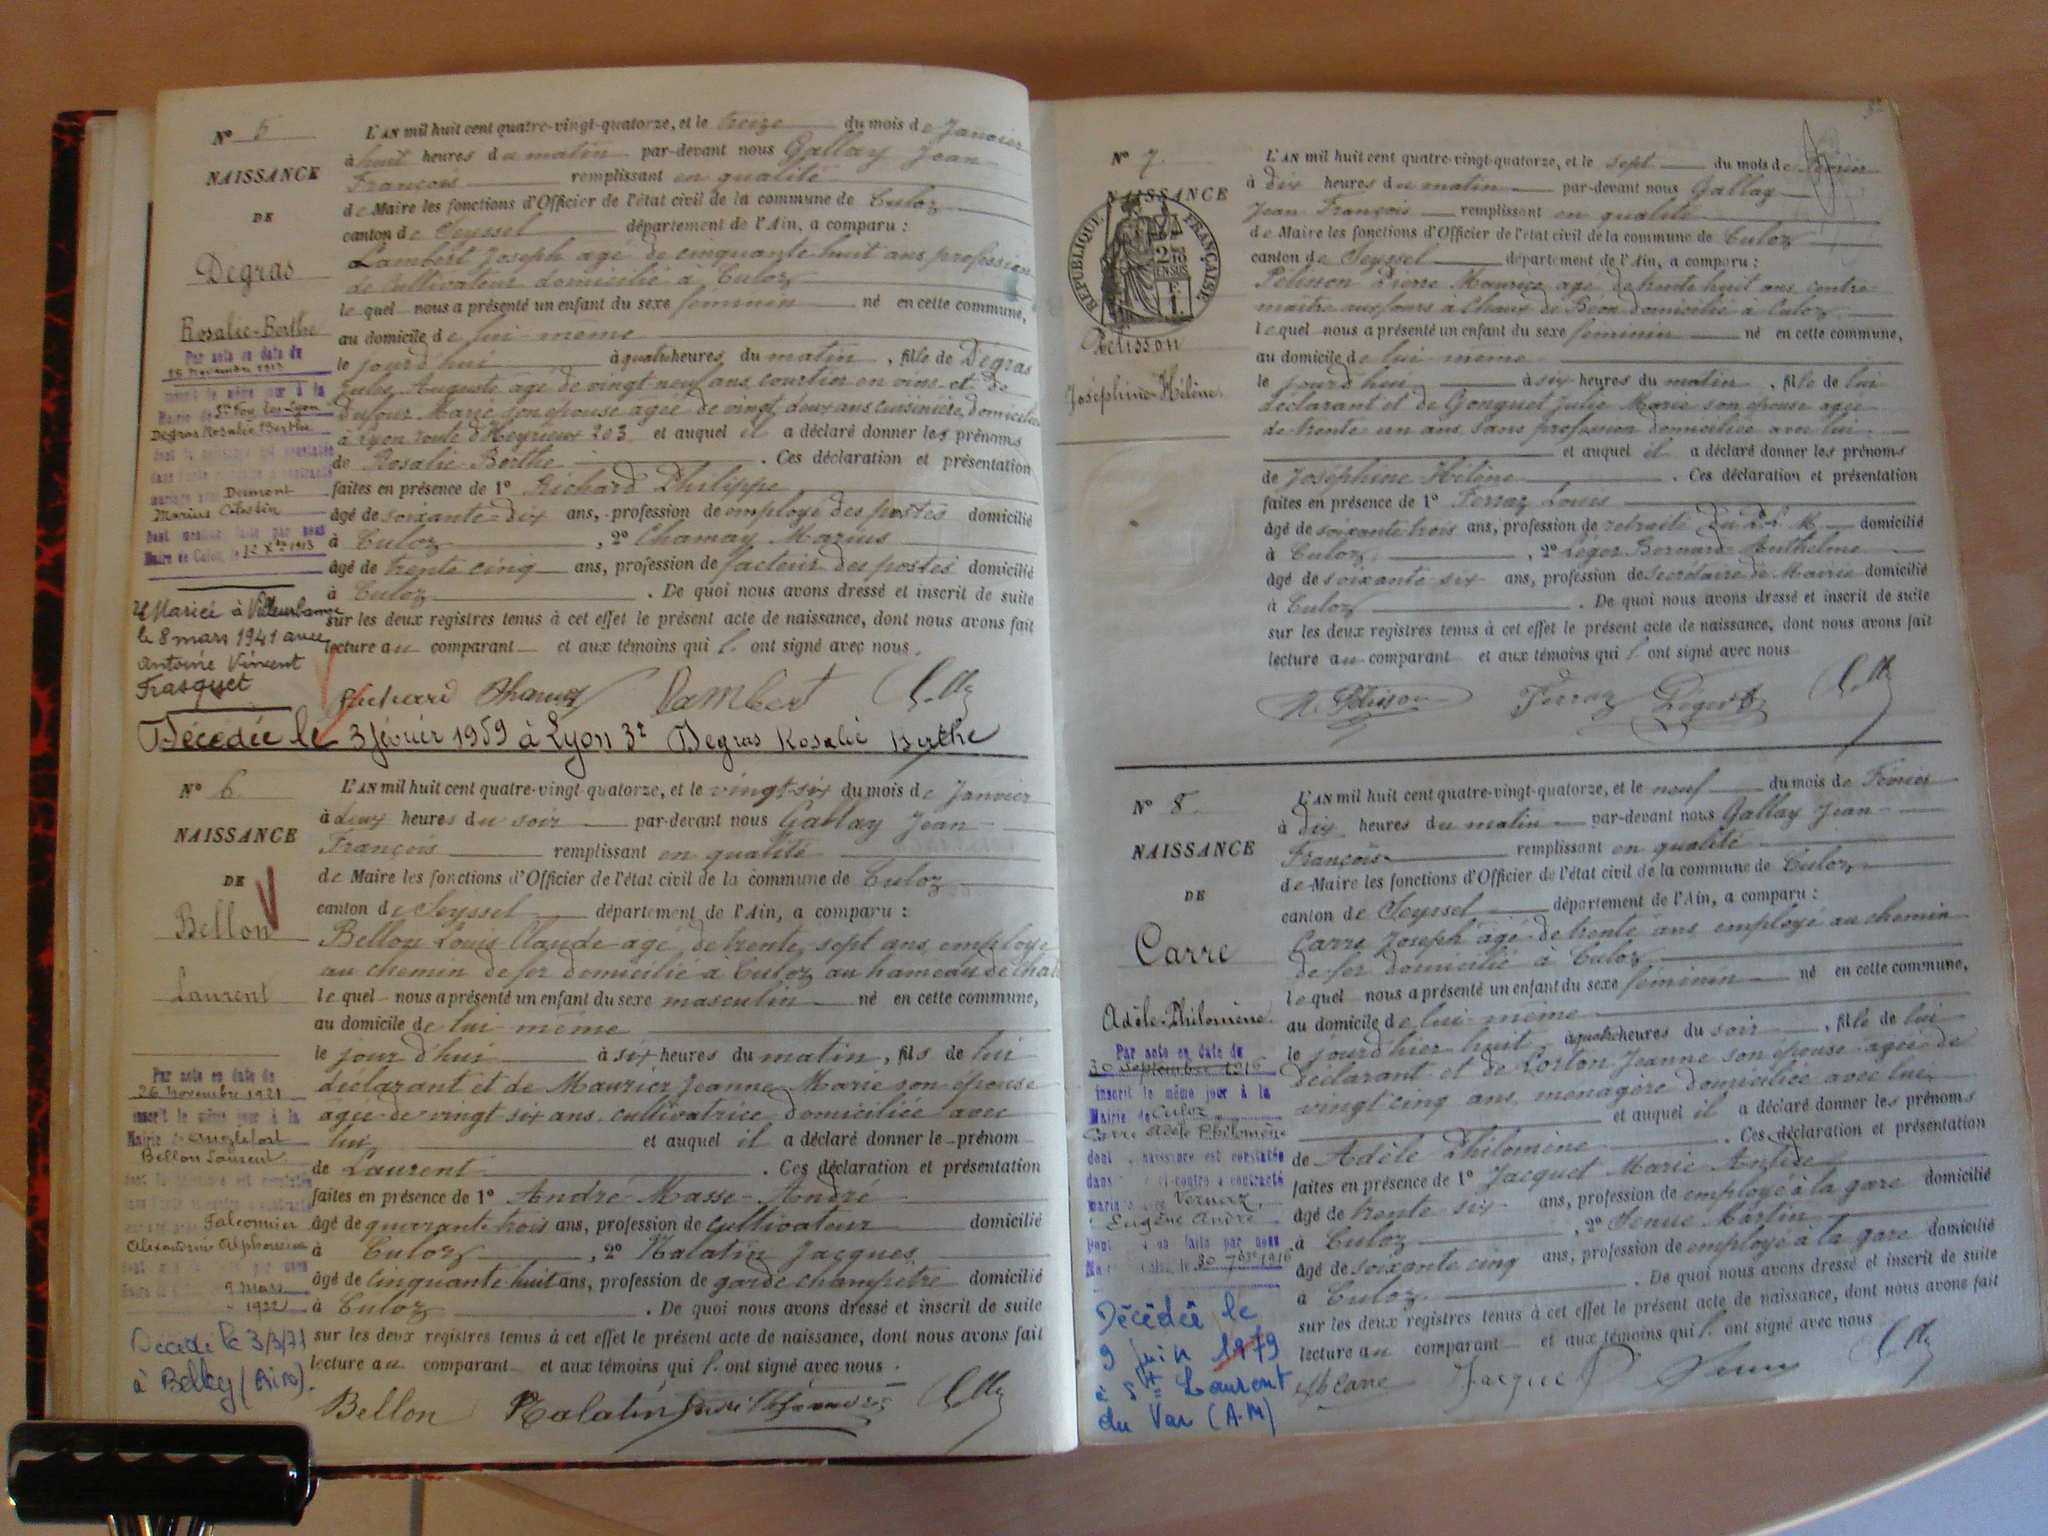 N° 5
NAISSANCE
DE
Degras
Rosalie-Berthe
Par acte en date du
15 novembre 1913
inscrit le même jour à la
Mairie de Ste Foy les Lyon
Degras Rosalie Berthe
dont la naissance est constatée
dans l'acte ci-contre a contracté
mariage avec Dumont
Marius Célestin
Dont mention faite par nous
Maire de Culoz, le 12 Xbre 1913
2e Mariée à Villeurbanne
le 8 mars 1941 avec
Antoine Vincent
Frasquet
L'AN mil huit cent quatre-vingt-quatorze, et le treize du mois de Janvier
à huit heures du matin par-devant nous Gallay Jean
François remplissant en qualité
de Maire les fonctions d'Officier de l'état civil de la commune de Culoz
canton de Seyssel département de l'Ain, a comparu :
Lambert Joseph agé de cinquante huit ans profession
de Cultivateur domicilié à Culoz
le quel nous a présenté un enfant du sexe féminin né en cette commune,
au domicile de lui même
le jourd'hui à quatre heures du matin, fille de Dégras
Jules Auguste agé de vingt neuf ans courtier en vins et de
Dufour Marie son épouse agée de vingt deux ans cuisinière, domiciliés
à Lyon route d'Heyrieux 203 et auquel il a déclaré donner les prénoms
de Rosalie-Berthe. Ces déclaration et présentation
faites en présence de 1° Richard Philippe
âgé de soixante-dix ans, profession de employé des postes domicilié
à Culoz, 2° Chamay Marius
âgé de trente cinq ans, profession de facteur des postes domicilié
à Culoz. De quoi nous avons dressé et inscrit de suite
sur les deux registres tenus à cet effet le présent acte de naissance, dont nous avons fait
lecture au comparant et aux témoins qui l'ont signé avec nous.
Richard Chamay Lambert
Décédée le 3 février 1959 à Lyon 3e Degras Rosalie Berthe
N° 6
NAISSANCE
DE
Bellon
Laurent
Par acte en date du
26 novembre 1921
inscrit le même jour à la
Mairie d'Anglefort
Bellon Laurent
dont la naissance est constatée
dans l'acte ci-contre a contracté
mariage avec Falconnier
Alexandrine Alphonsine
9 mars
1922
Décédé le 3/3/71
à Belley (Ain).
L'AN mil huit cent quatre-vingt-quatorze, et le vingt-six du mois de Janvier
à deux heures du soir par-devant nous Gallay Jean
François remplissant en qualité
de Maire les fonctions d'Officier de l'état civil de la commune de Culoz
canton de Seyssel département de l'Ain, a comparu :
Bellon Louis Claude agé de trente sept ans employé
au chemin de fer domicilié à Culoz au hameau de
le quel nous a présenté un enfant du sexe masculin né en cette commune,
au domicile de lui même
le jour d'hui à six heures du matin, fils de lui
déclarant et de Maurier Jeanne Marie son épouse
agée de vingt six ans cultivatrice domiciliée avec
lui et auquel il a déclaré donner le prénom
de Laurent. Ces déclaration et présentation
faites en présence de 1° André Masse André
âgé de quarante trois ans, profession de Cultivateur domicilié
à Culoz, 2° Ralatin Jacques
âgé de cinquante huit ans, profession de garde champêtre domicilié
à Culoz. De quoi nous avons dressé et inscrit de suite
sur les deux registres tenus à cet effet le présent acte de naissance, dont nous avons fait
lecture au comparant et aux témoins qui l'ont signé avec nous.
Bellon Ralatin
N° 7
NAISSANCE
RÉPUBLIQUE FRANÇAISE
Pélisson
Joséphine-Hélène
L'AN mil huit cent quatre-vingt-quatorze, et le sept du mois de Février
à dix heures du matin par-devant nous Gallay
Jean François remplissant en qualité
de Maire les fonctions d'Officier de l'état civil de la commune de Culoz
canton de Seyssel département de l'Ain, a comparu :
Pélisson Pierre Maurice agé de trente huit ans contre
maître aux fours à Chaux de Béon domicilié à Culoz
le quel nous a présenté un enfant du sexe féminin né en cette commune,
au domicile de lui même
le jourd'hui à six heures du matin, fille de lui
déclarant et de Gonguet Julie Marie son épouse agée
de trente un ans sans profession domiciliée avec lui
et auquel il a déclaré donner les prénoms
de Joséphine Hélène. Ces déclaration et présentation
faites en présence de 1° Ferraz Louis
âgé de soixante trois ans, profession de retraité du P.L.M. domicilié
à Culoz, 2° Léger Bernard Anthelme
âgé de soixante six ans, profession de secrétaire de Mairie domicilié
à Culoz. De quoi nous avons dressé et inscrit de suite
sur les deux registres tenus à cet effet le présent acte de naissance, dont nous avons fait
lecture au comparant et aux témoins qui l'ont signé avec nous
M. Pélisson Ferraz Léger
N° 8
NAISSANCE
DE
Carre
Adèle-Philomène
Par acte en date du
30 septembre 1916
inscrit le même jour à la
Mairie de Culoz
Carre Adèle Philomène
dont la naissance est constatée
dans l'acte ci-contre a contracté
mariage avec Vernaz
Eugène André
Dont mention faite par nous
Maire de Culoz, le 30 7bre 1916
Décédée le
9 juin 1979
à St Laurent
du Var (A.M)
L'AN mil huit cent quatre-vingt-quatorze, et le neuf du mois de Février
à dix heures du matin par-devant nous Gallay Jean
François remplissant en qualité
de Maire les fonctions d'Officier de l'état civil de la commune de Culoz
canton de Seyssel département de l'Ain, a comparu :
Carre Joseph agé de trente ans employé au chemin
de fer domicilié à Culoz
le quel nous a présenté un enfant du sexe féminin né en cette commune,
au domicile de lui même
le jourd'hier huit à quatre heures du soir, fille de lui
déclarant et de Lorton Jeanne son épouse agée de
vingt cinq ans ménagère domiciliée avec lui
et auquel il a déclaré donner les prénoms
de Adèle Philomène. Ces déclaration et présentation
faites en présence de 1° Jacquet Marie Antide
âgé de trente six ans, profession de employé à la gare domicilié
à Culoz, 2° Martin
âgé de soixante cinq ans, profession de employé à la gare domicilié
à Culoz. De quoi nous avons dressé et inscrit de suite
sur les deux registres tenus à cet effet le présent acte de naissance, dont nous avons fait
lecture au comparant et aux témoins qui l'ont signé avec nous
Jacquet